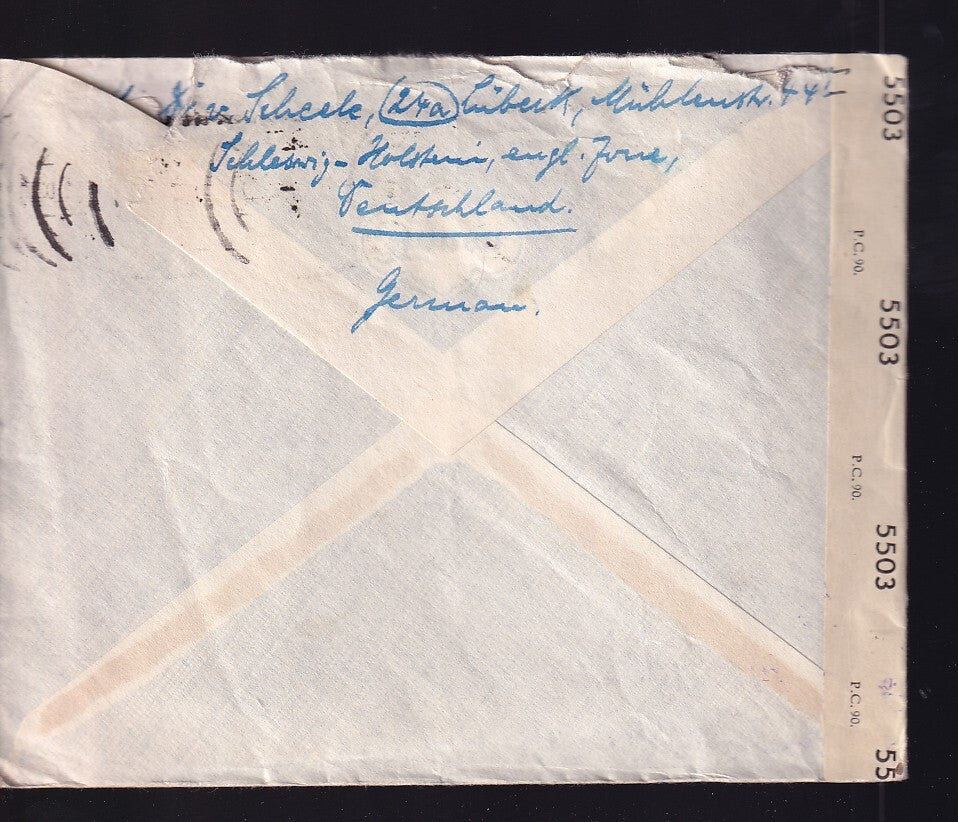 Scheele, (24a) Lübeck, Mühlenstr.
Schleswig-Holstein, engl. Zone,
Deutschland.
German.
5503
P.C. 90.
5503
P.C. 90.
5503
P.C. 90.
55